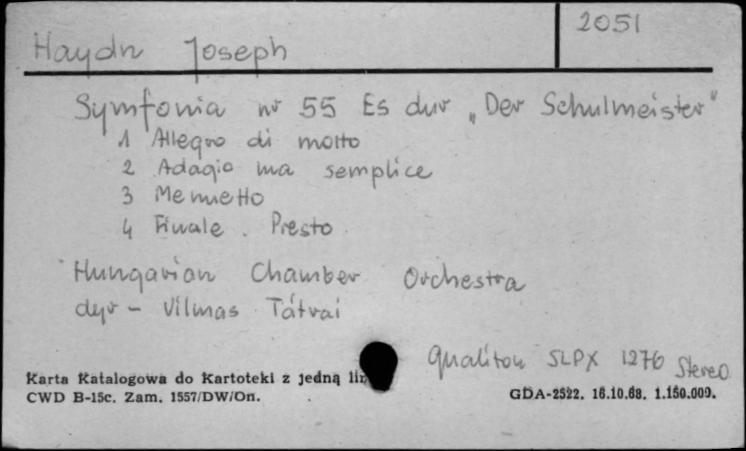 Haydn Joseph 2051
Symfonia nr 55 Es dur „Der Schulmeister"
1 Allegro di molto
2 Adagio ma semplice
3 Menuetto
4 Finale. Presto
Hungarian Chamber Orchestra
dyr - Vilmas Tátrai
Qualiton SLPX 1276 Stereo
Karta Katalogowa do Kartoteki z jedną
CWD B-15c. Zam. 1557/DW/On.
GDA-2522. 16.10.68. 1.150.000.